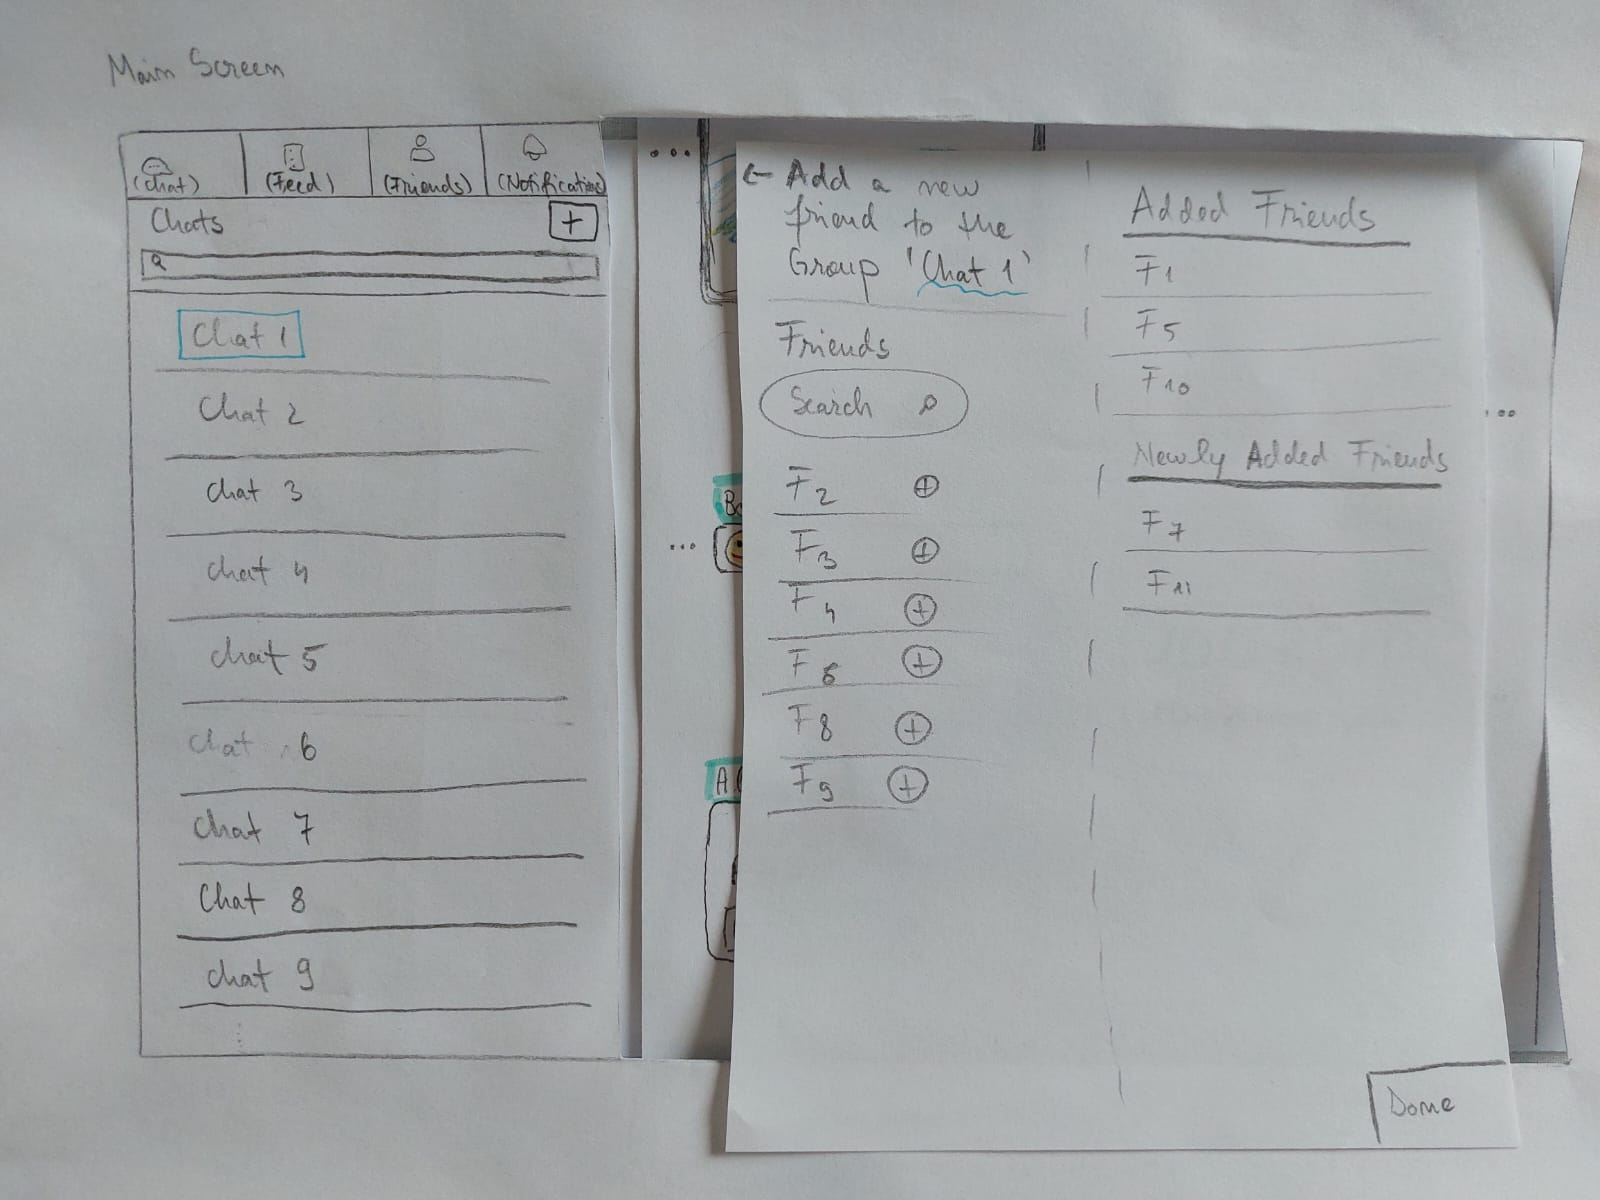 Main Screen
(Chat)
(Feed)
(Friends)
(Notification)
Chats
+
Chat 1
Chat 2
Chat 3
Chat 4
Chat 5
Chat 6
Chat 7
Chat 8
Chat 9
...
...
← Add a new
friend to the
Group 'Chat 1'
Friends
Search
F2
F3
F4
F6
F8
F9
Added Friends
F1
F5
F10
Newly Added Friends
F7
F11
...
Done